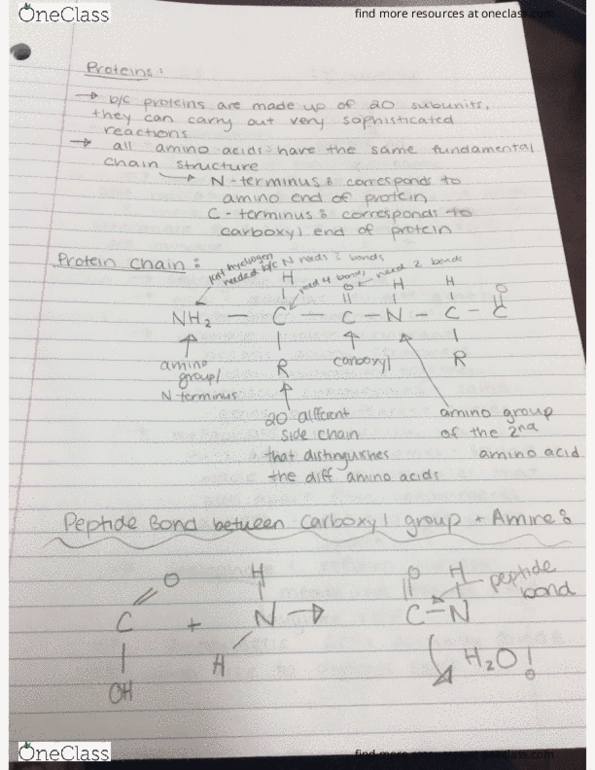 OneClass
find more resources at oneclass.com
Proteins:
→ b/c proteins are made up of 20 subunits,
they can carry out very sophisticated
reactions
→ all amino acids have the same fundamental
chain structure
→ N-terminus: corresponds to
amino end of protein
C-terminus: corresponds to
carboxyl end of protein
Protein chain:
just hydrogen
needed b/c N needs 2 bonds
need 4 bonds
need 2 bonds
H O H H O
NH2 — C — C — N — C — C
R R
amino
group/
N-terminus
carboxyl
20 different
side chain
that distinguishes
the diff amino acids
amino group
of the 2nd
amino acid
Peptide Bond between carboxyl group + Amine:
O H O H
C + N → C = N
OH H
peptide
bond
H2O!
OneClass
find more resources at oneclass.com